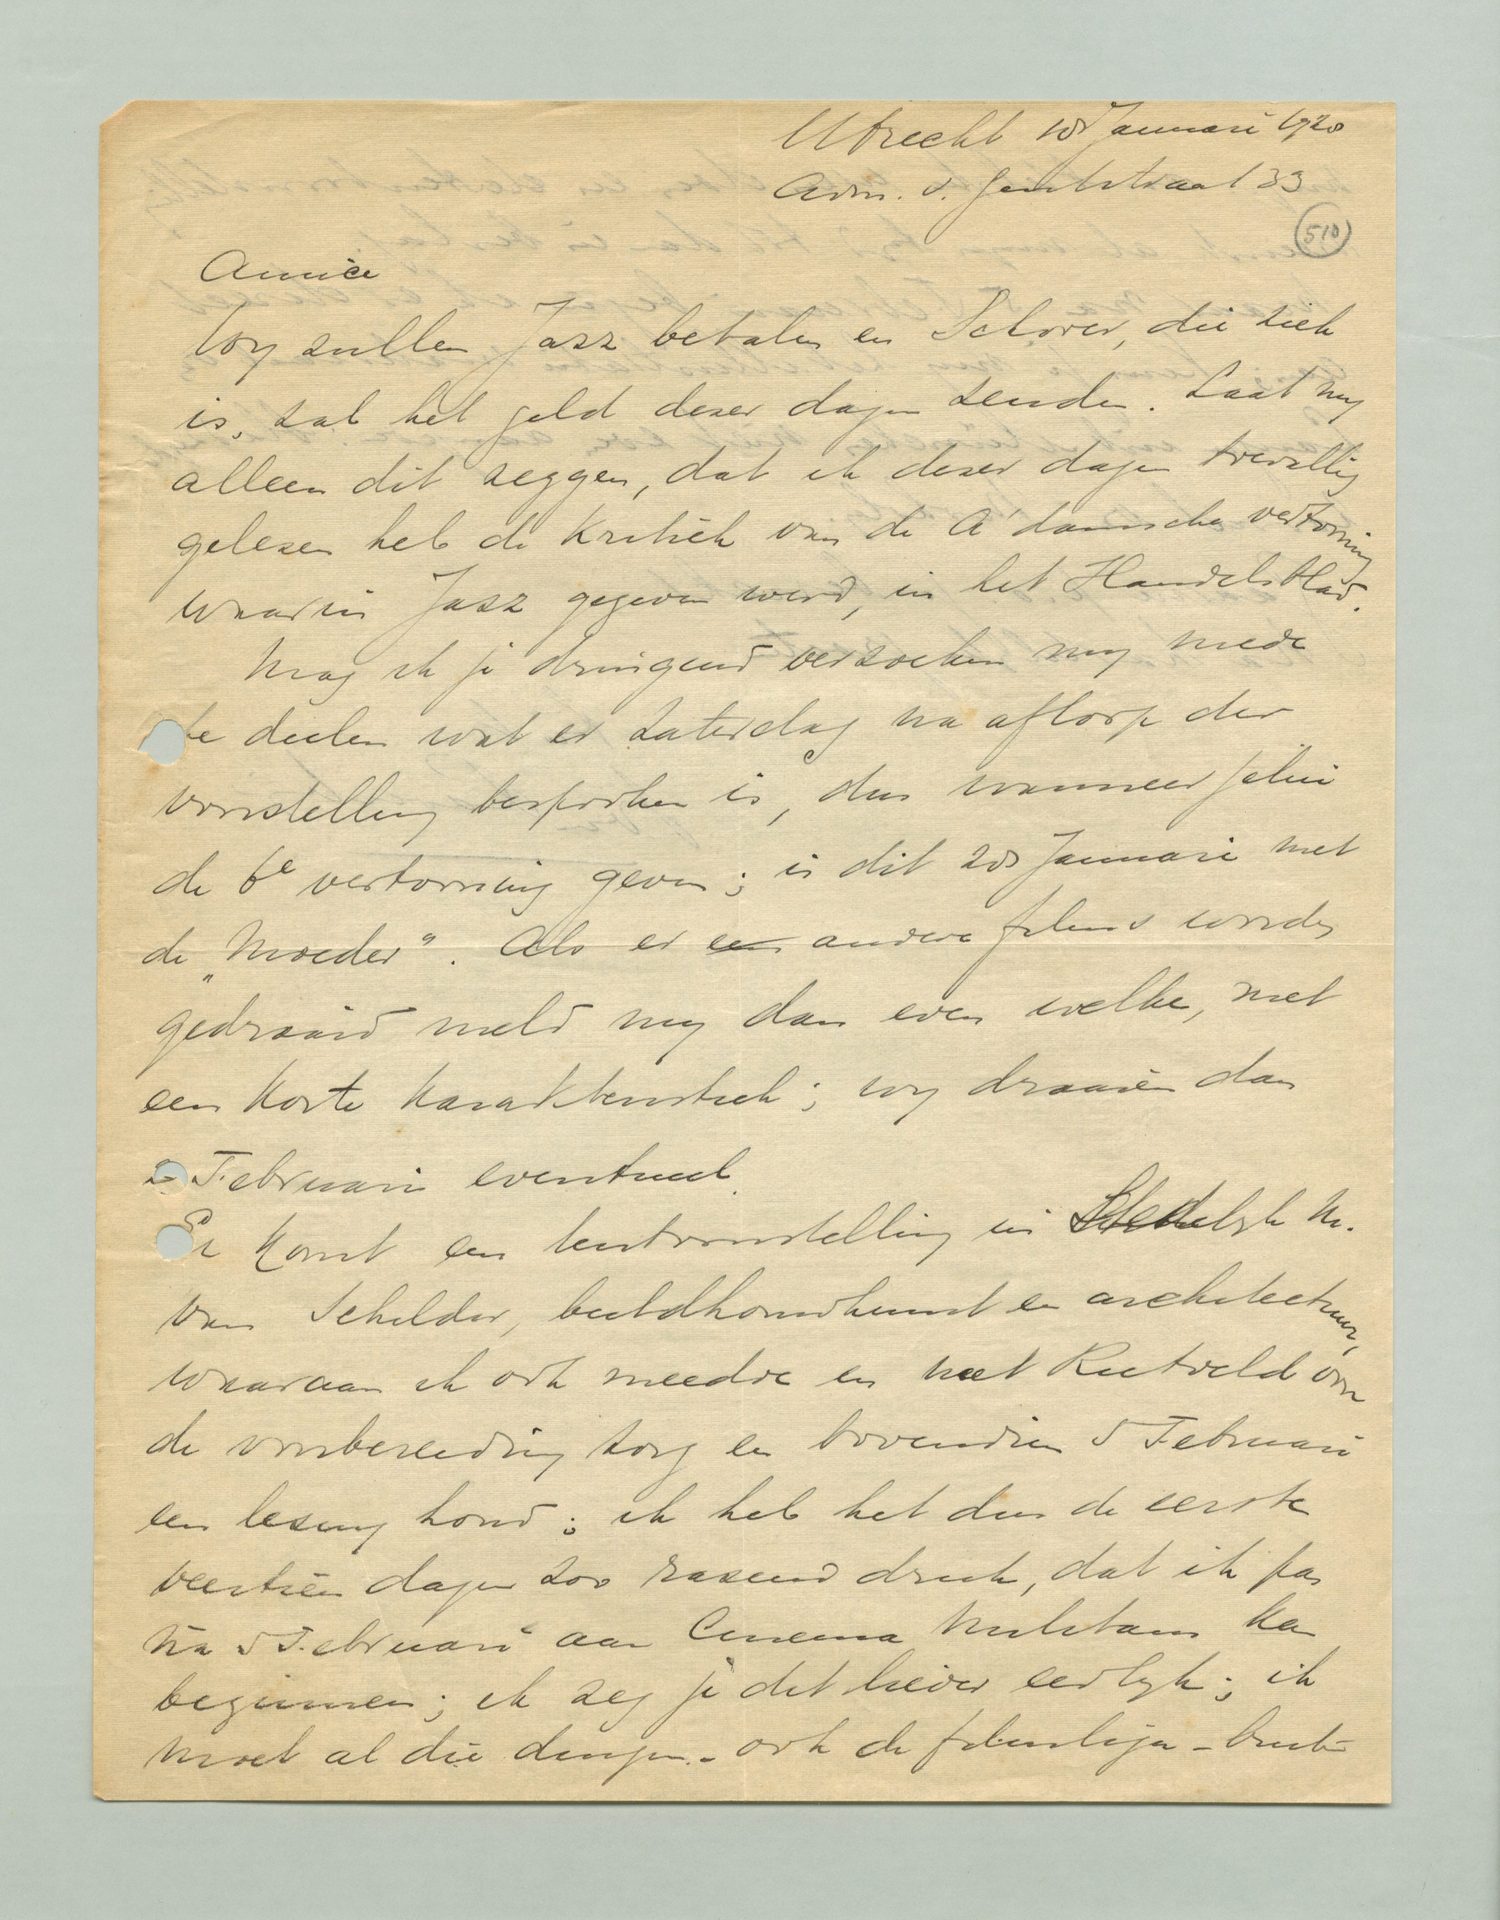 Utrecht 10 Januari 1928
Adm. v. Gentstraat 33
510
Amice
Wy zullen Jazz betalen en Schorer, die ziek
is, zal het geld dezer dagen zenden. Laat my
alleen dit zeggen, dat ik dezer dagen toevallig
gelezen heb de kritiek van de A'damsche vertooning
waarin Jazz gegeven werd, in het Handelsblad.
Mag ik je dringend verzoeken my mede
te deelen wat er Zaterdag na afloop der
voorstelling besproken is, dus wanneer jelui
de 6e vertooning geven; is dit 28 Januari met
de „Moeder". Als er een andere films worden
gedraaid meld my dan even welke, met
een korte karakteristiek; wy draaien dan
2 Februari eventueel.
Er komt een tentoonstelling in Stedelyk M.
van Schilder, beeldhouwkunst en architectuur,
waaraan ik ook meedoe en met Rietveld voor
de voorbereiding zorg en bovendien 5 Februari
een lezing houd; ik heb het dus de eerste
veertien dagen zoo razend druk, dat ik pas
na 5 Februari aan Cinema Militans kan
beginnen; ik zeg je dit liever eerlyk; ik
moet al die dingen - ook de filmliga -